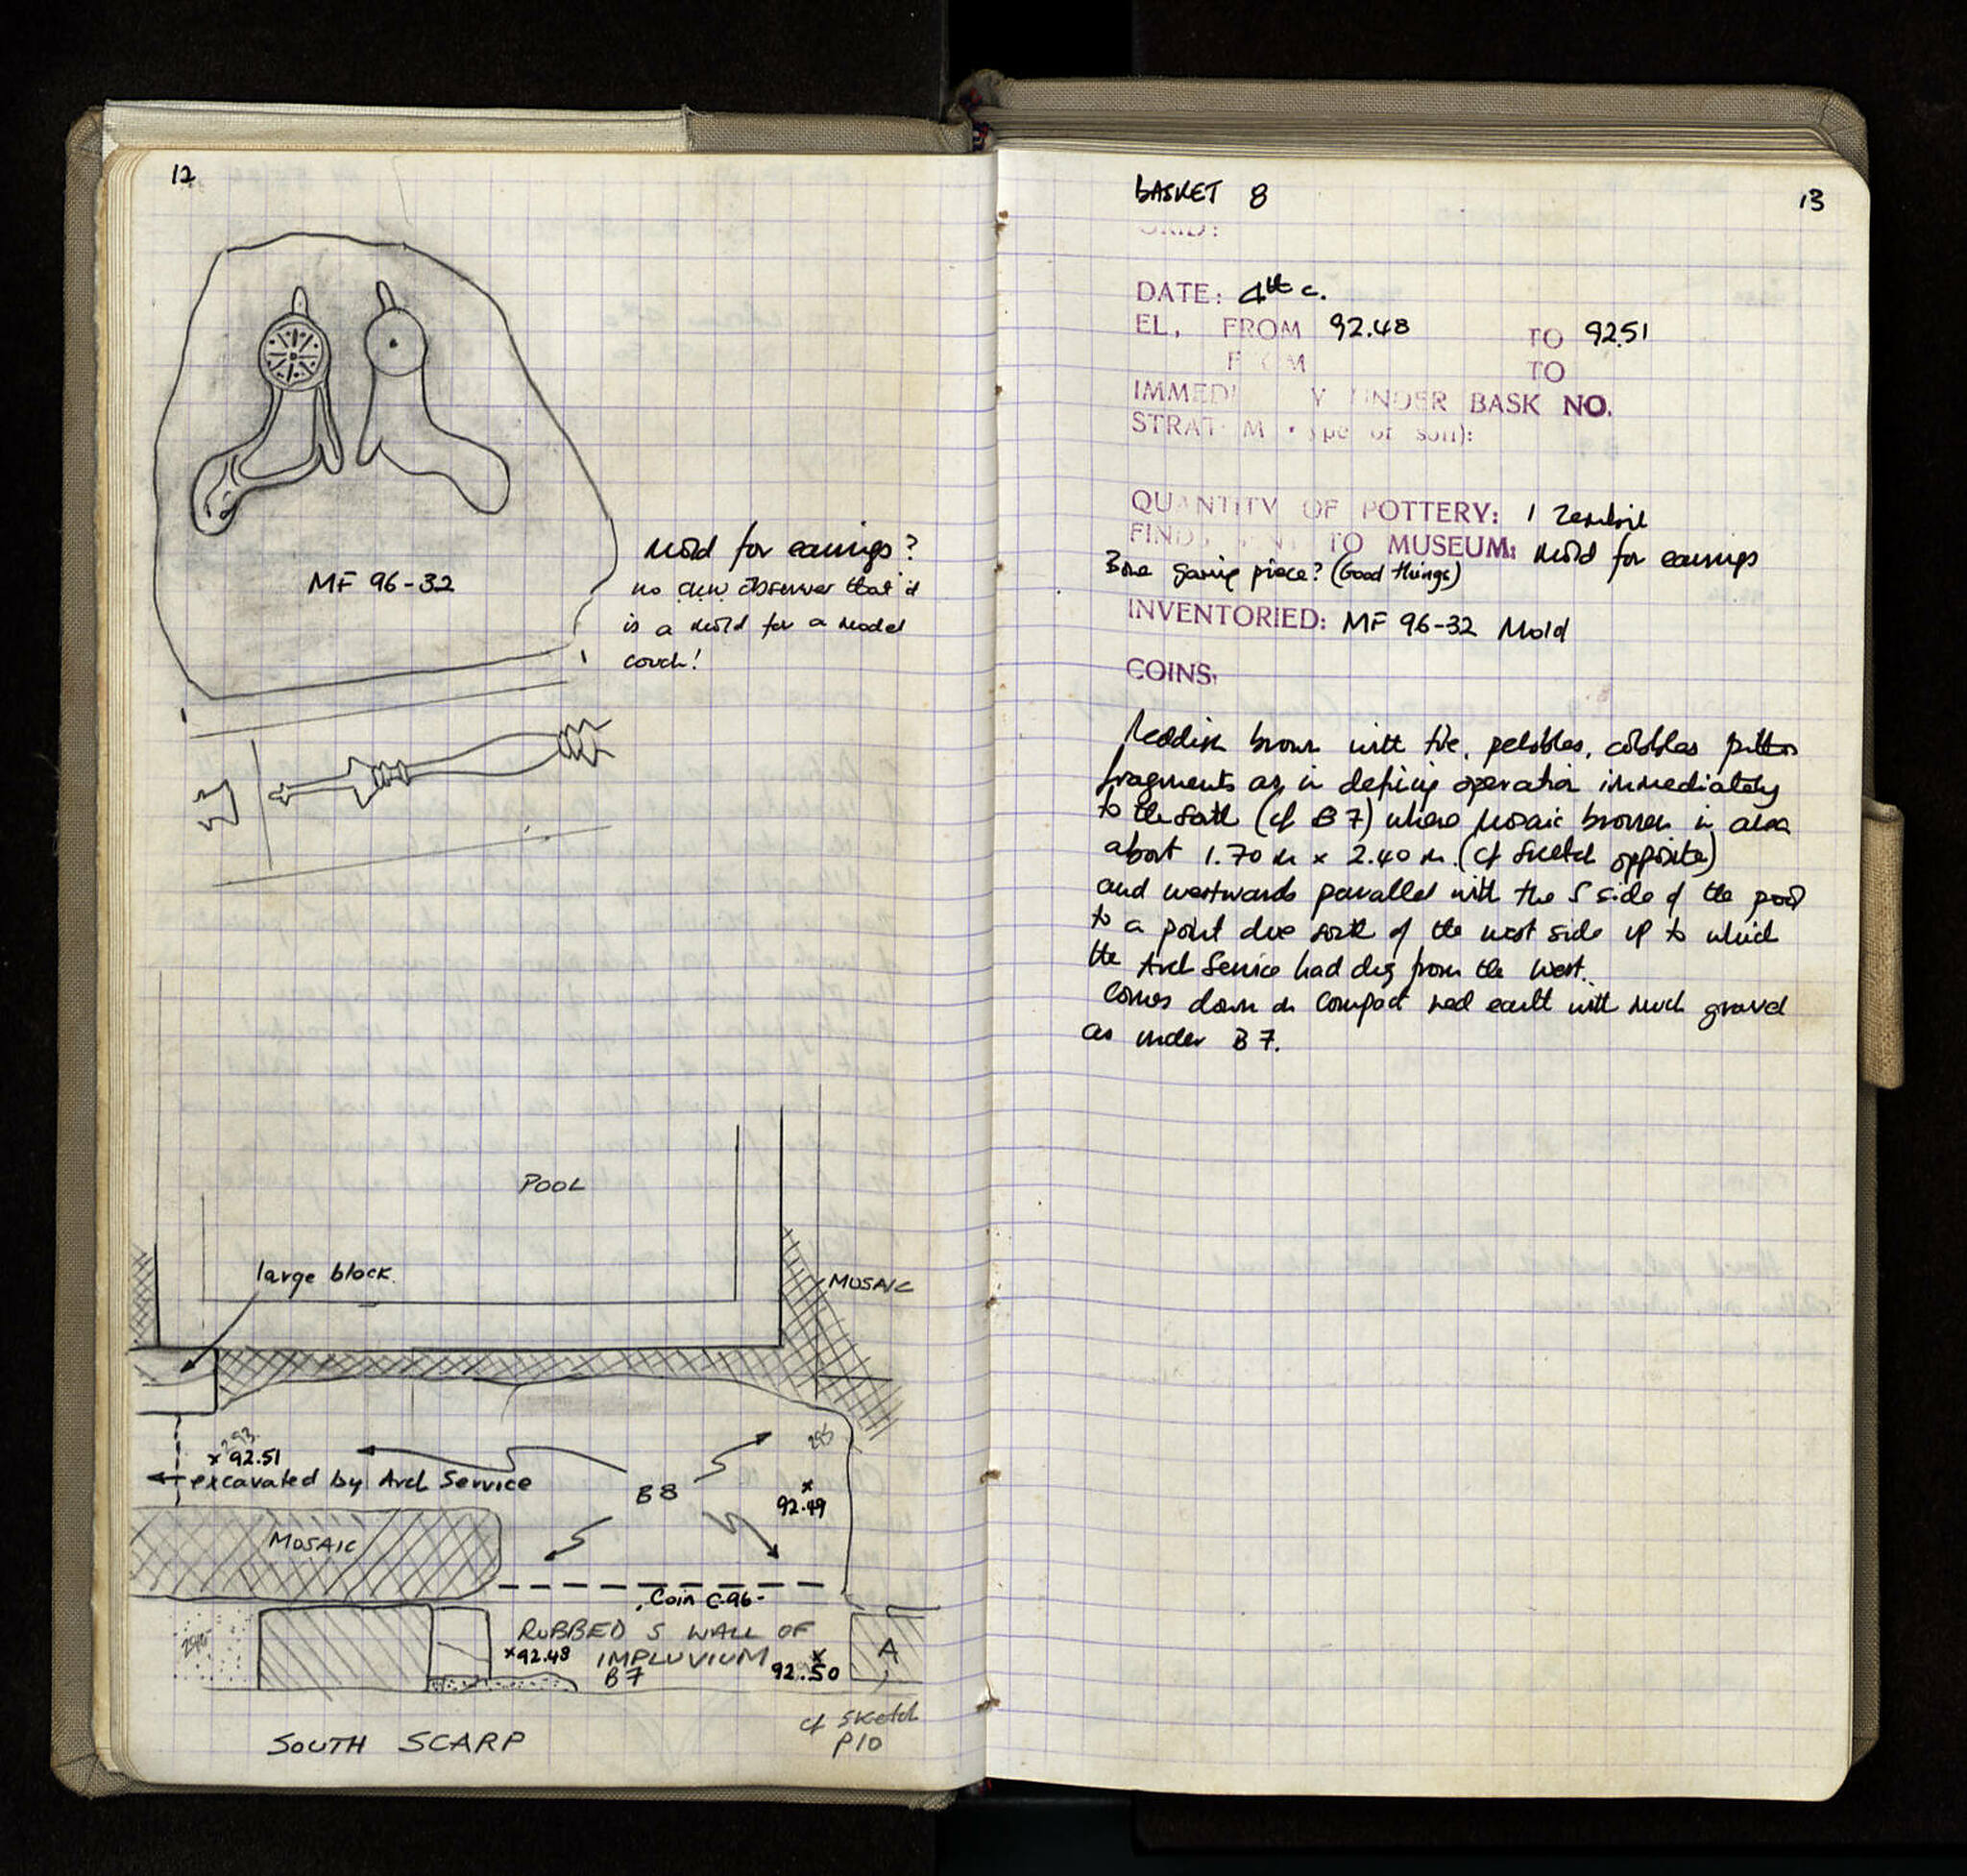 12
MF 96-32
Mold for earrings?
no observer that it
is a mold for a model
couch!
POOL
large block.
MOSAIC
293
x 92.51
excavated by Arch Service
B8
295
x
92.49
MOSAIC
Coin C.96-
ROBBED S WALL OF
x 92.48 IMPLUVIUM x
B7 92.50
A
SOUTH SCARP
cf Sketch
P10
BASKET 8
13
GRID:
DATE: 4th c.
EL, FROM 92.48 TO 92.51
FROM TO
IMMEDIATELY UNDER BASK NO.
STRATUM (type of soil):
QUANTITY OF POTTERY: 1 Zembil
FINDS SENT TO MUSEUM: Mold for earrings
Bone gaming piece? (Good things)
INVENTORIED: MF 96-32 Mold
COINS:
Reddish brown with tile, pebbles, cobbles pithos
fragments as in defining operation immediately
to the south (cf B7) where mosaic broken in area
about 1.70 m x 2.40 m. (cf sketch opposite)
and westwards parallel with the S side of the pool
to a point due south of the west side up to which
the Arch Service had dug from the West.
Comes down on compact red earth with much gravel
as under B7.